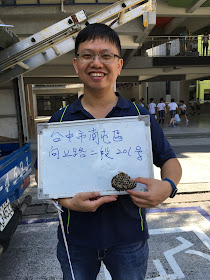 台中市南屯區
向上路二段201號